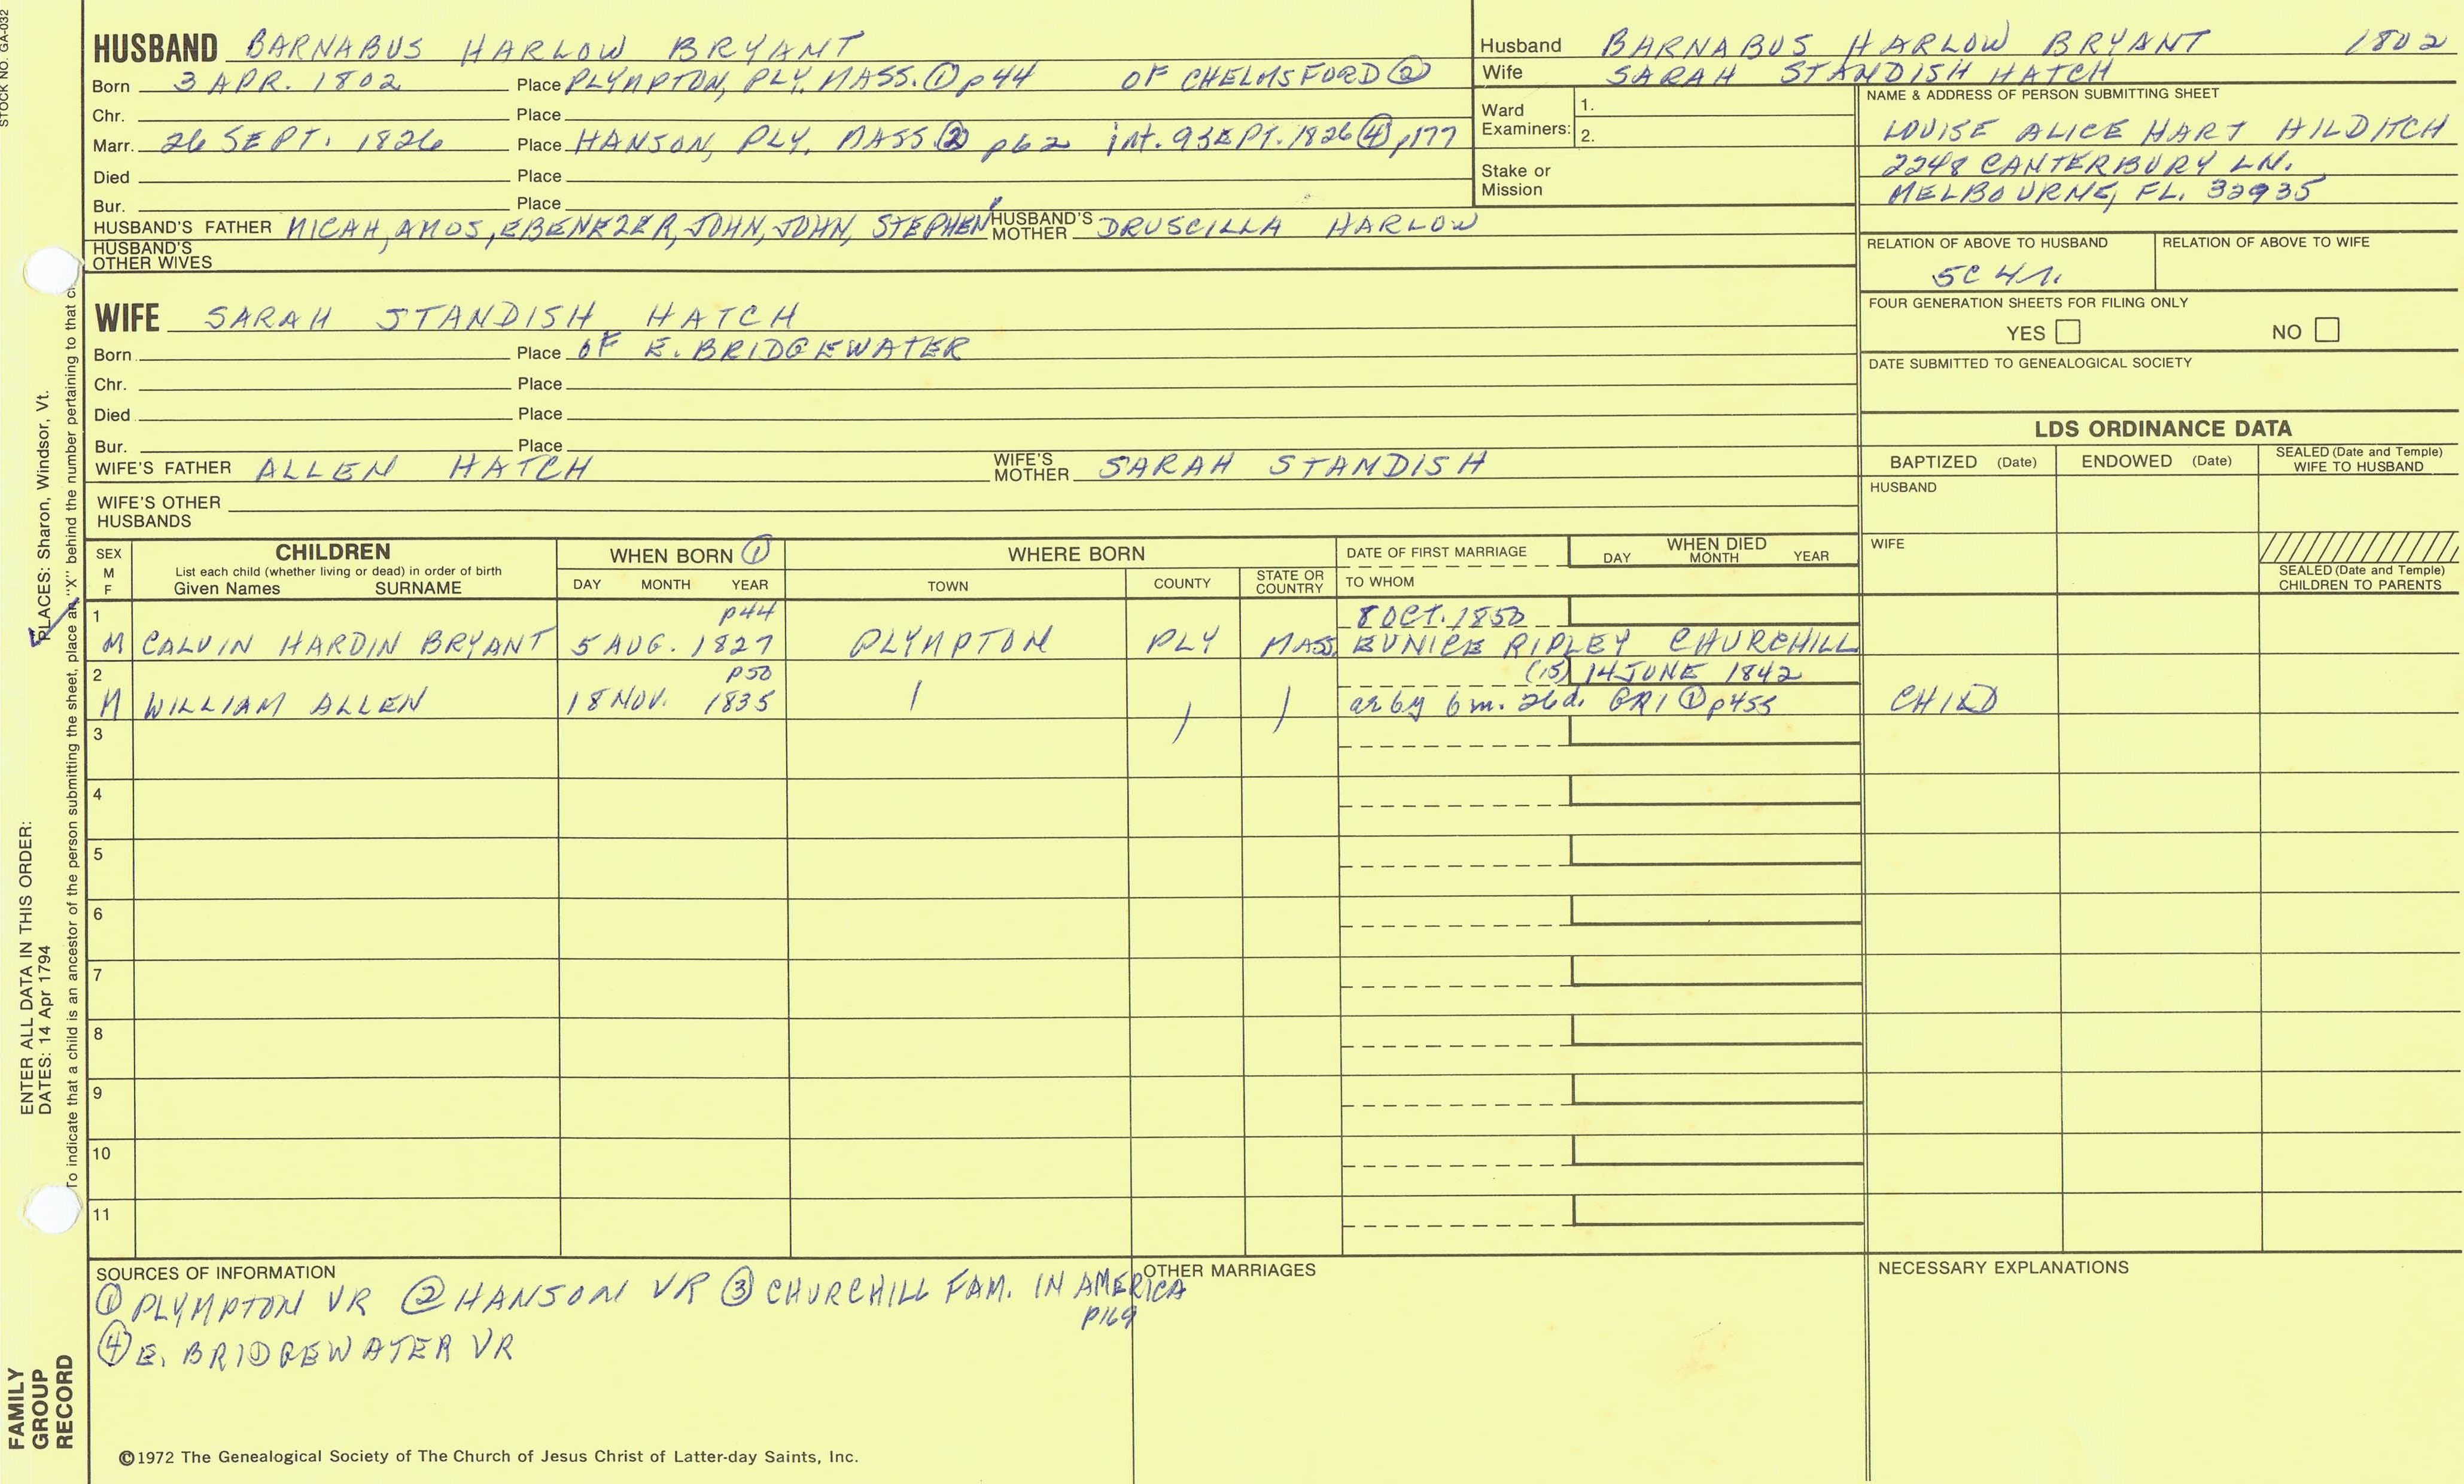 STOCK NO. GA-032
HUSBAND BARNABUS HARLOW BRYANT
Born 3 APR. 1802 Place PLYMPTON, PLY. MASS. ① p44 OF CHELMSFORD ②
Chr. Place
Marr. 26 SEPT. 1826 Place HANSON, PLY. MASS ② p62 int. 9 SEPT. 1826 ④ p177
Died Place
Bur. Place
HUSBAND'S FATHER MICAH, AMOS, EBENEZER, JOHN, JOHN, STEPHEN HUSBAND'S MOTHER DRUSCILLA HARLOW
HUSBAND'S OTHER WIVES
Husband BARNABUS HARLOW BRYANT 1802
Wife SARAH STANDISH HATCH
Ward Examiners: 1.
2.
Stake or Mission
NAME & ADDRESS OF PERSON SUBMITTING SHEET
LOUISE ALICE HART HILDITCH
2248 CANTERBURY LN.
MELBOURNE, FL. 32935
RELATION OF ABOVE TO HUSBAND RELATION OF ABOVE TO WIFE
5C 4r.
FOUR GENERATION SHEETS FOR FILING ONLY
YES NO
DATE SUBMITTED TO GENEALOGICAL SOCIETY
WIFE SARAH STANDISH HATCH
Born Place OF E. BRIDGEWATER
Chr. Place
Died Place
Bur. Place
WIFE'S FATHER ALLEN HATCH WIFE'S MOTHER SARAH STANDISH
WIFE'S OTHER HUSBANDS
LDS ORDINANCE DATA
BAPTIZED (Date) ENDOWED (Date) SEALED (Date and Temple) WIFE TO HUSBAND
HUSBAND
WIFE
SEALED (Date and Temple) CHILDREN TO PARENTS
SEX M F
CHILDREN
List each child (whether living or dead) in order of birth
Given Names SURNAME
WHEN BORN ①
DAY MONTH YEAR
WHERE BORN
TOWN COUNTY STATE OR COUNTRY
DATE OF FIRST MARRIAGE
TO WHOM
WHEN DIED
DAY MONTH YEAR
1 p44 8 OCT. 1850
M CALVIN HARDIN BRYANT 5 AUG. 1827 PLYMPTON PLY MASS. EUNICE RIPLEY CHURCHILL
2 p50 (15) 14 JUNE 1842
M WILLIAM ALLEN 18 NOV. 1835 ae 6y 6m. 26d. GR1 ① p455 CHILD
3
4
5
6
7
8
9
10
11
SOURCES OF INFORMATION
① PLYMPTON VR ② HANSON VR ③ CHURCHILL FAM. IN AMERICA
p169
④ E. BRIDGEWATER VR
OTHER MARRIAGES
NECESSARY EXPLANATIONS
©1972 The Genealogical Society of The Church of Jesus Christ of Latter-day Saints, Inc.
FAMILY GROUP RECORD
ENTER ALL DATA IN THIS ORDER:
DATES: 14 Apr 1794
PLACES: Sharon, Windsor, Vt.
To indicate that a child is an ancestor of the person submitting the sheet, place an "X" behind the number pertaining to that